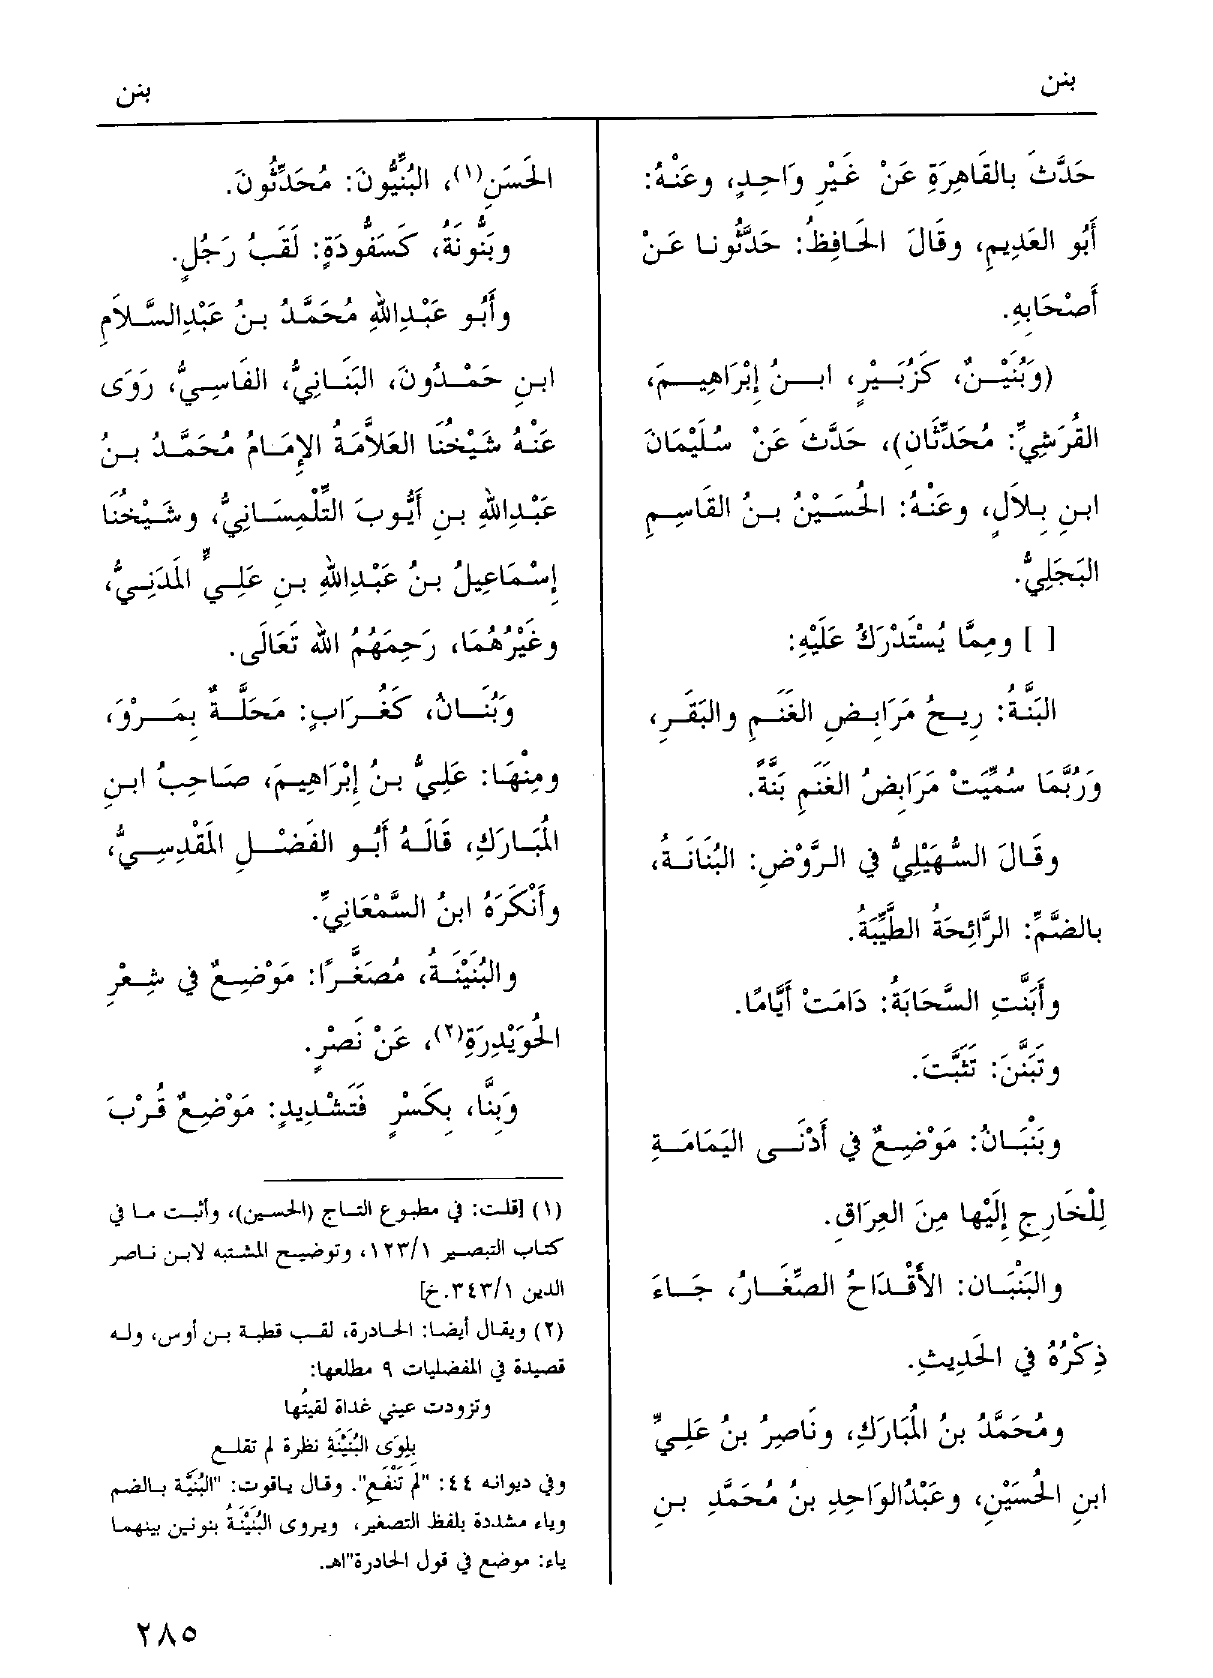 بنن
بنن
حَدَّثَ بالقَاهِرَةِ عَنْ غَيْرِ وَاحِدٍ، وعَنْهُ:
أَبُو العَدِيمِ، وقَالَ الحَافِظُ: حَدَّثُونا عَنْ
أَصْحَابِهِ.
(وبُنَيْنٌ، كَزُبَيْرٍ، ابنُ إِبْرَاهِيمَ،
القُرَشِيُّ: مُحَدِّثَانِ)، حَدَّثَ عَنْ سُلَيْمَانَ
ابنِ بِلَالٍ، وعَنْهُ: الحُسَيْنُ بنُ القَاسِمِ
البَجَلِيُّ.
[ ] ومِمَّا يُسْتَدْرَكُ عَلَيْهِ:
البَنَّةُ: رِيحُ مَرَابِضِ الغَنَمِ والبَقَرِ،
وَرُبَّمَا سُمِّيَتْ مَرَابِضُ الغَنَمِ بَنَّةً.
وقَالَ السُّهَيْلِيُّ في الرَّوْضِ: البُنَانَةُ،
بالضَّمِّ: الرَّائِحَةُ الطَّيِّبَةُ.
وأَبَنَّتِ السَّحَابَةُ: دَامَتْ أَيَّامًا.
وتَبَنَّنَ: تَثَبَّتَ.
وبَنْبَانُ: مَوْضِعٌ في أَدْنَى اليَمَامَةِ
لِلْخَارِجِ إِلَيْها مِنَ العِرَاقِ.
والبَنْبَان: الأَقْدَاحُ الصِّغَارُ، جَاءَ
ذِكْرُهُ في الحَدِيثِ.
ومُحَمَّدُ بنُ المُبَارَكِ، ونَاصِرُ بنُ عَلِيِّ
ابنِ الحُسَيْنِ، وعَبْدُالوَاحِدِ بنُ مُحَمَّدِ بنِ
الحَسَنِ(١)، البُنِّيُّونَ: مُحَدِّثُونَ.
وبَنُّونَةُ، كَسَفُّودَةٍ: لَقَبُ رَجُلٍ.
وأَبُو عَبْدِاللهِ مُحَمَّدُ بنُ عَبْدِالسَّلَامِ
ابنِ حَمْدُونَ، البَنَّانِيُّ، الفَاسِيُّ، رَوَى
عَنْهُ شَيْخُنَا العَلَّامَةُ الإِمَامُ مُحَمَّدُ بنُ
عَبْدِاللهِ بنِ أَيُّوبَ التِّلْمِسَانِيُّ، وشَيْخُنَا
إِسْمَاعِيلُ بنُ عَبْدِاللهِ بنِ عَلِيٍّ المَدَنِيُّ،
وغَيْرُهُمَا، رَحِمَهُمُ الله تَعَالَى.
وَبُنَانُ، كَغُرَابٍ: مَحَلَّةٌ بِمَرْوَ،
ومِنْهَا: عَلِيُّ بنُ إِبْرَاهِيمَ، صَاحِبُ ابنِ
المُبَارَكِ، قَالَهُ أَبُو الفَضْلِ المَقْدِسِيُّ،
وأَنْكَرَهُ ابنُ السَّمْعَانِيِّ.
والبُنَيْنَةُ، مُصَغَّرًا: مَوْضِعٌ في شِعْرِ
الحُوَيْدِرَةِ(٢)، عَنْ نَصْرٍ.
وَبِنَّا، بِكَسْرٍ فَتَشْدِيدٍ: مَوْضِعٌ قُرْبَ
(١) [قلت: في مطبوع التاج (الحسين)، وأثبت ما في
كتاب التبصير ١٢٣/١، وتوضيح المشتبه لابن ناصر
الدين ٣٤٣/١.خ]
(٢) ويقال أيضا: الحادرة، لقب قطبة بن أوس، وله
قصيدة في المفضليات ٩ مطلعها:
وتزودت عيني غداة لقيتُها
بِلِوَى البُنَيْنَةِ نظرة لم تقلع
وفي ديوانه ٤٤: "لم تَنْفَعِ". وقال ياقوت: "البُنَيَّة بالضم
وياء مشددة بلفظ التصغير، ويروى البُنَيْنَةُ بنونين بينهما
ياء: موضع في قول الحادرة"اهـ.
٢٨٥